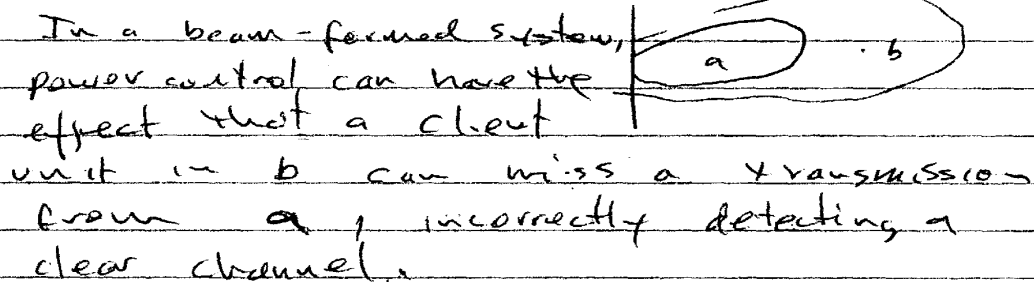 In a beam-formed system,
power control can have the
effect that a client
unit in b can miss a transmission
from a, incorrectly detecting a
clear channel.
a
b